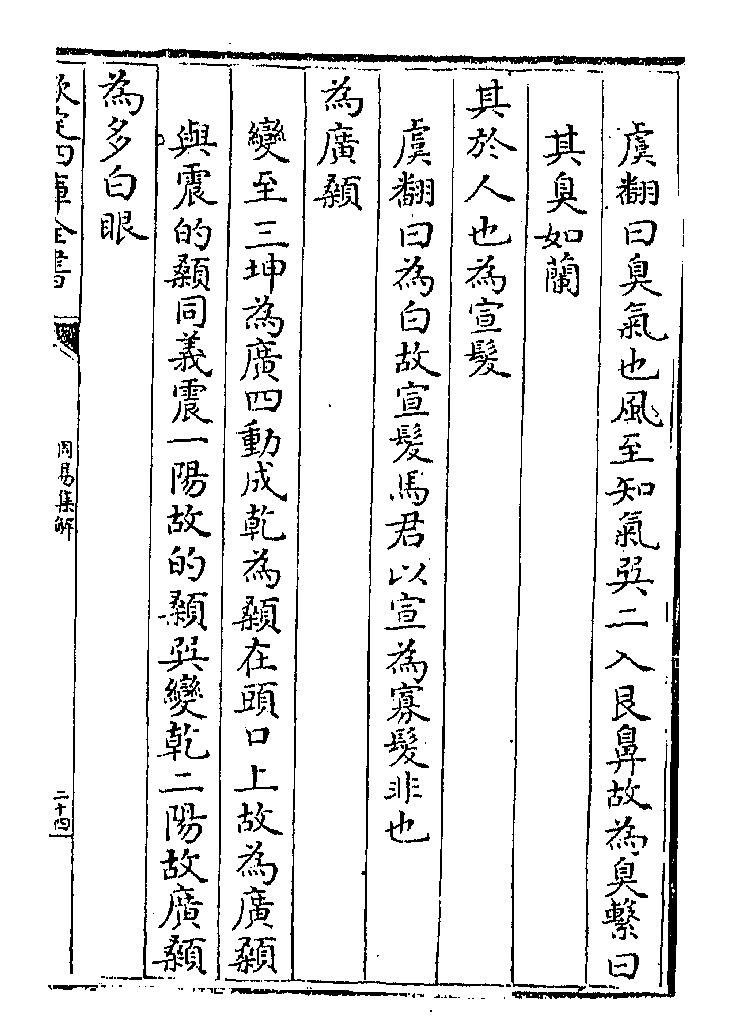 虞翻曰臭氣也風至知氣巽二入艮鼻故為臭繫曰
其臭如蘭
其於人也為宣髮
虞翻曰為白故宣髮馬君以宣為寡髮非也
為廣顙
變至三坤為廣四動成乾為顙在頭口上故為廣顙
與震的顙同義震一陽故的顙巽變乾二陽故廣顙
為多白眼
欽定四庫全書
周易集解
二十四